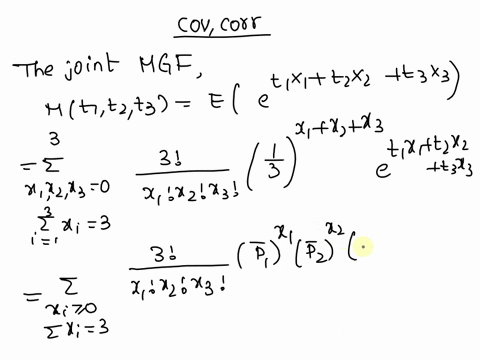 COV, corr
The joint MGF,
M(t₁,t₂,t₃) = E( e^{t₁x₁+t₂x₂+t₃x₃})
= Σ_{x₁,x₂,x₃=0, Σ_{i=1}^{3} x_i=3}^{3} 3!/(x₁!x₂!x₃!) (1/3)^{x₁+x₂+x₃} e^{t₁x₁+t₂x₂+t₃x₃}
= Σ_{x_i≥0, Σx_i=3} 3!/(x₁!x₂!x₃!) (p̅₁)^{x₁} (p̅₂)^{x₂} (